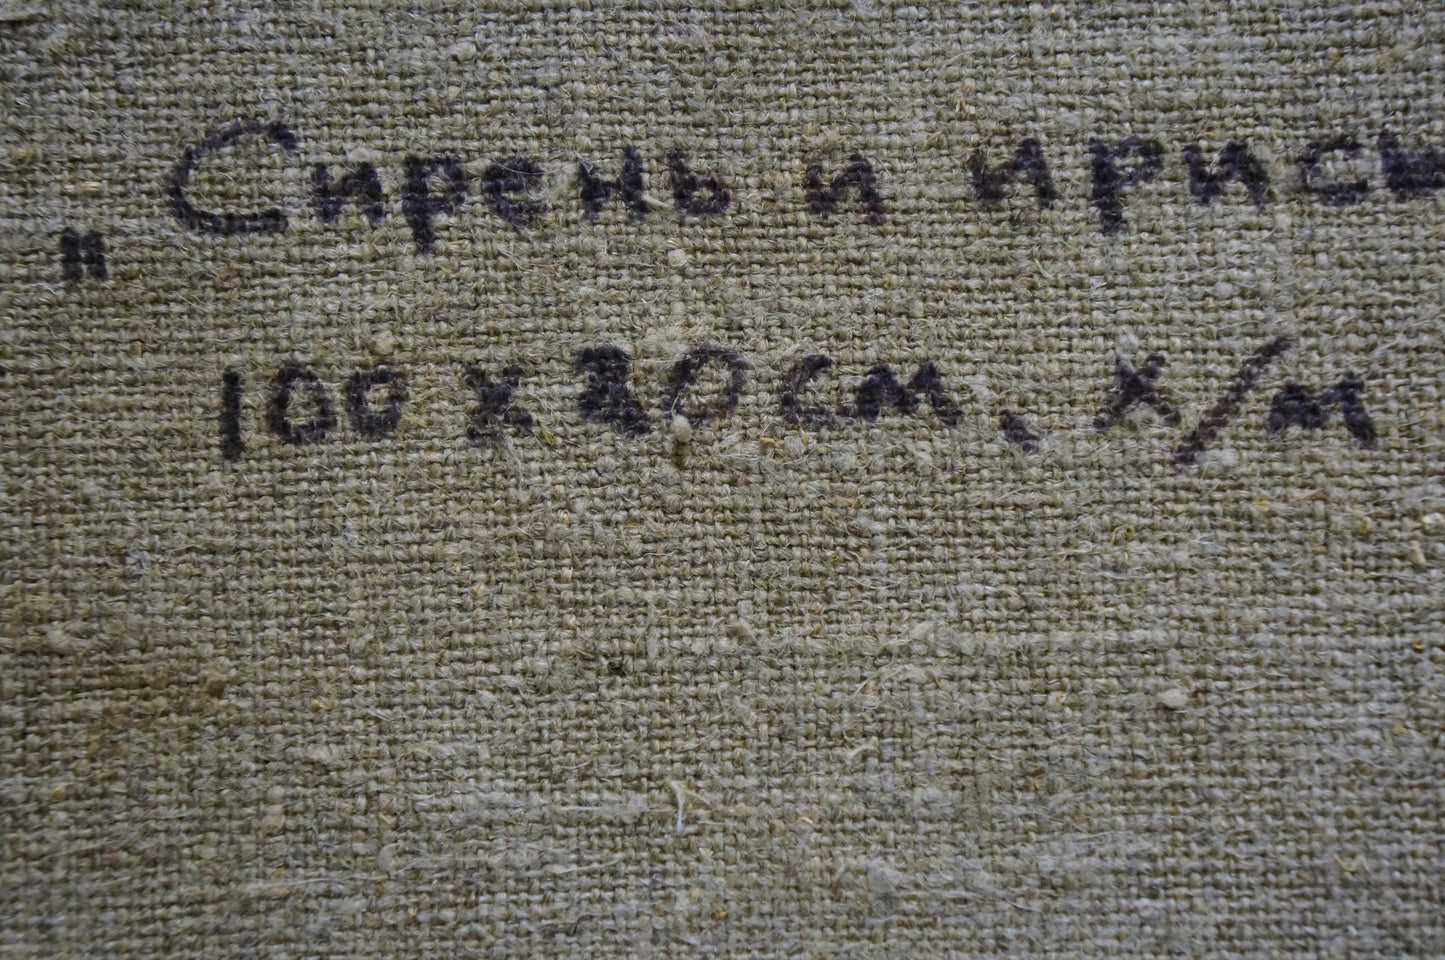 „Сирень и ирисы
100 х см, х/м